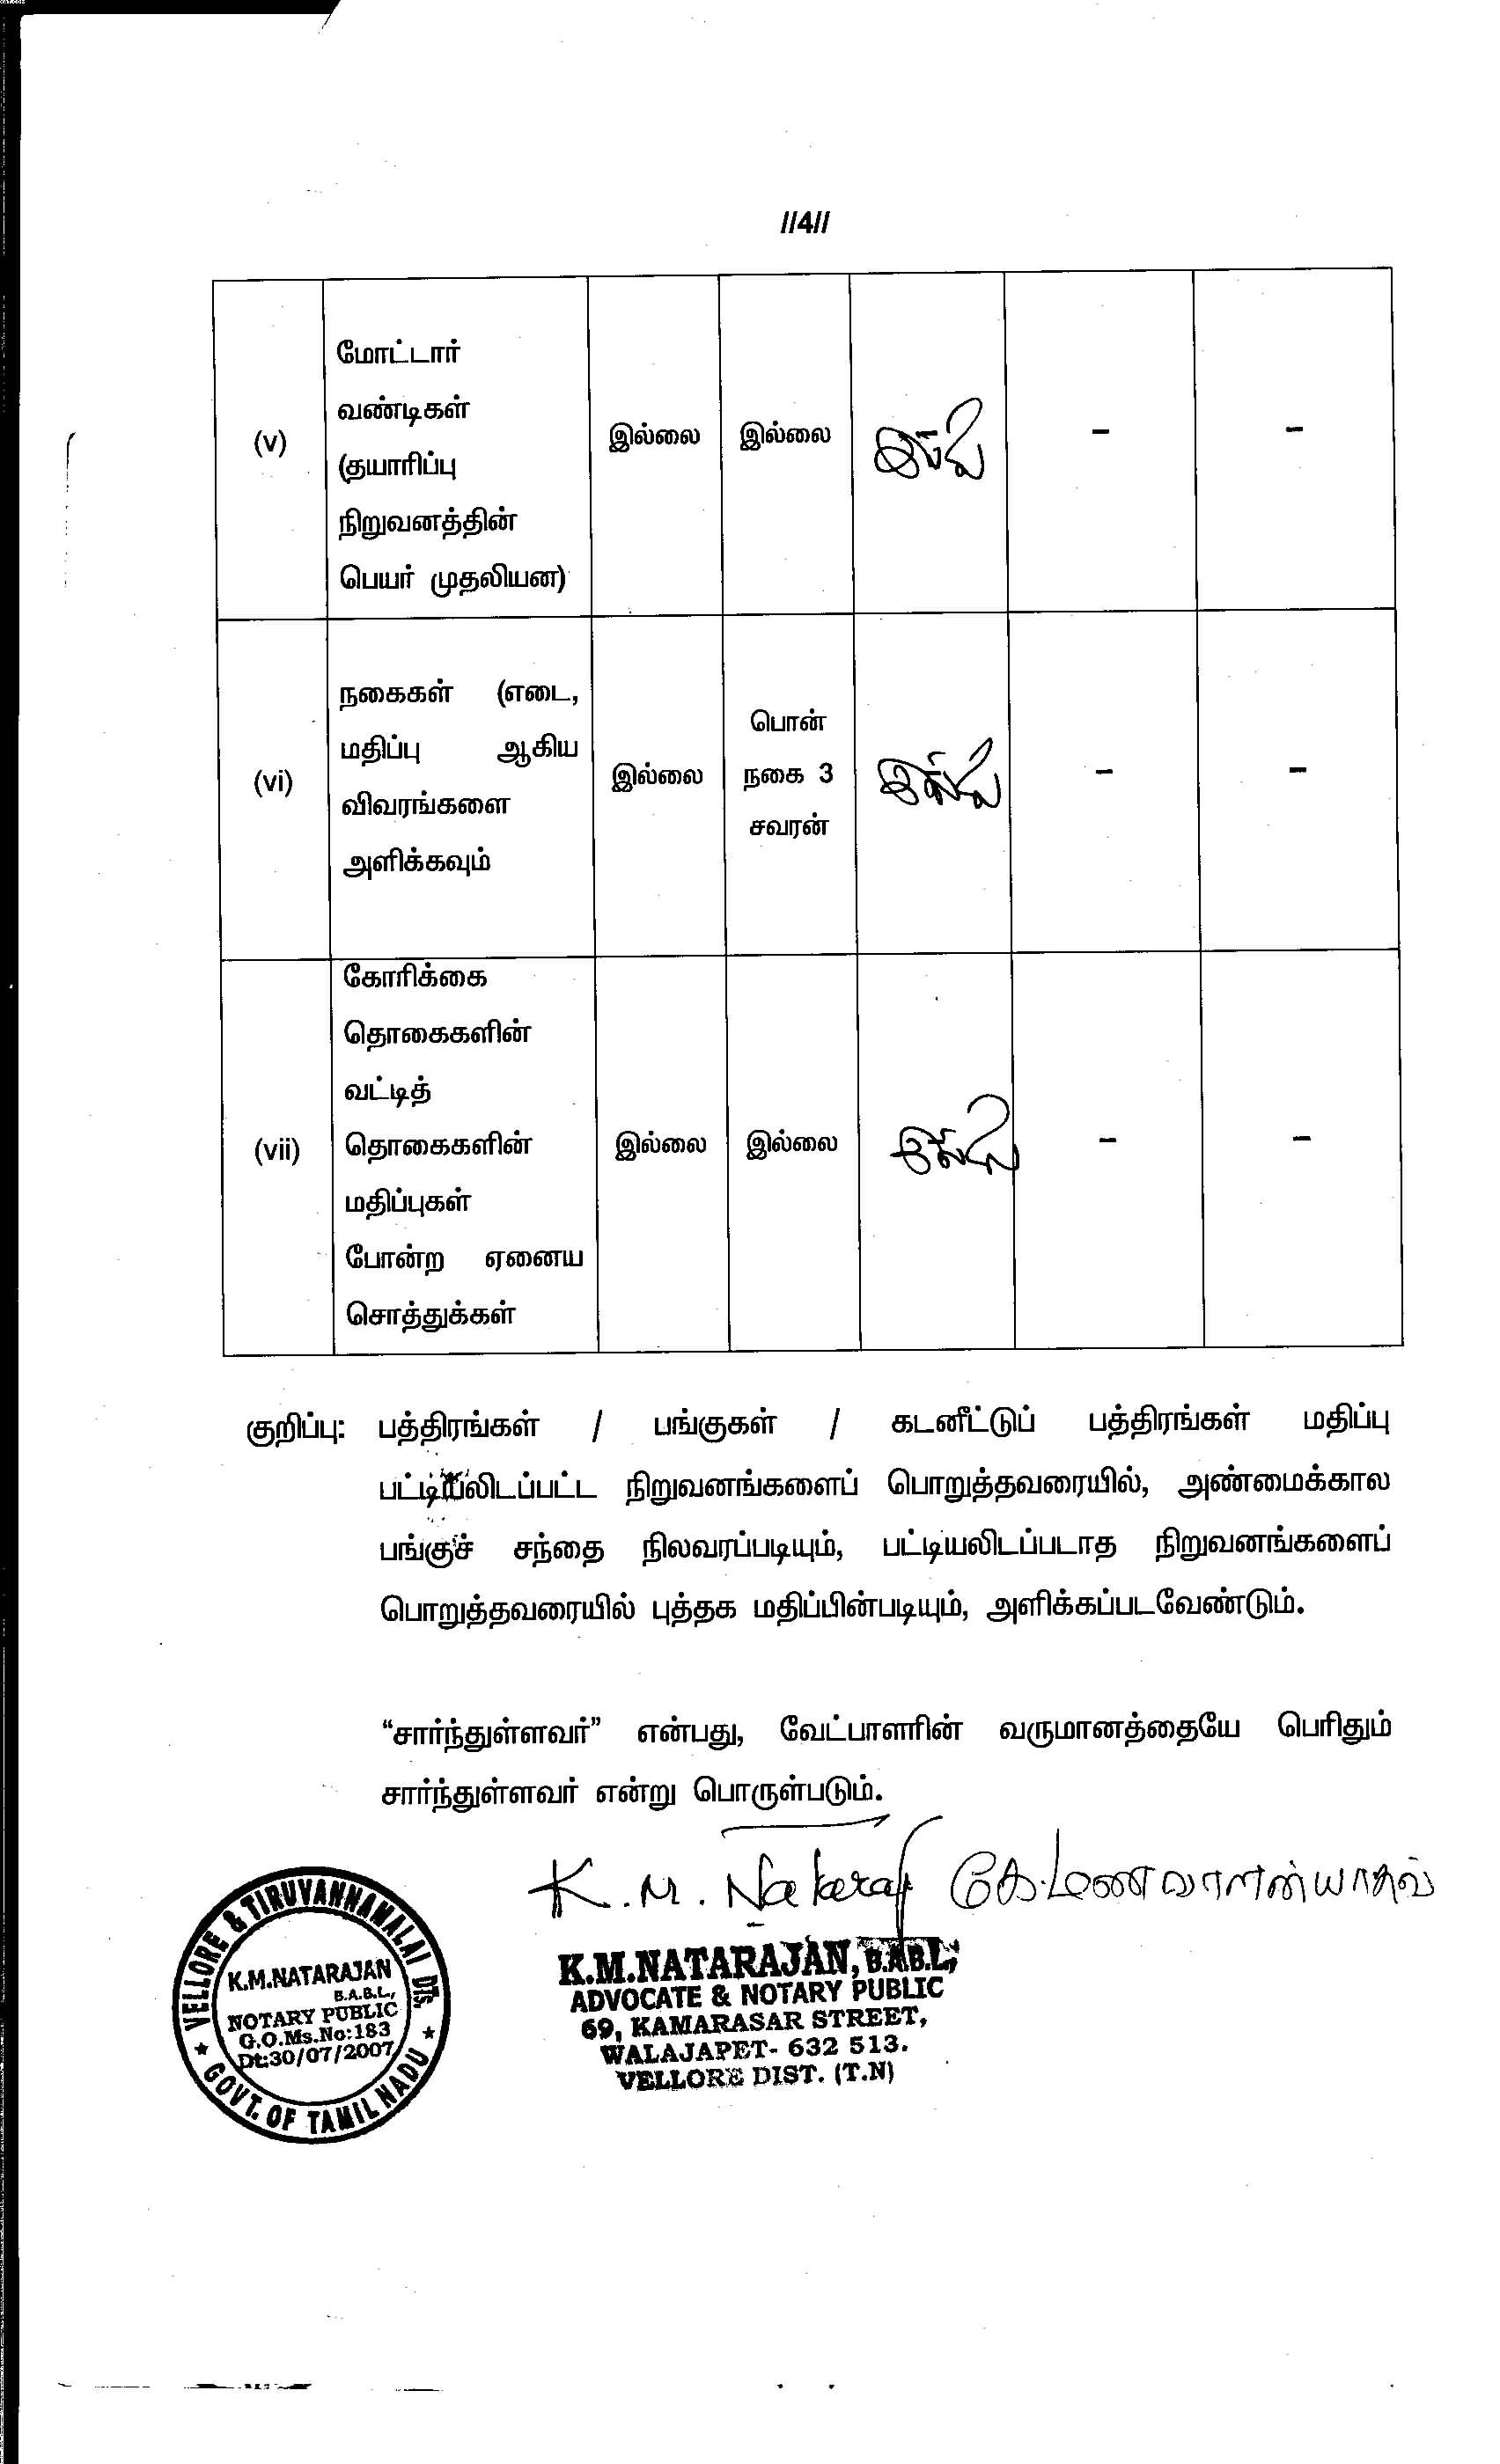 //4//
மோட்டார்
வண்டிகள்
(v) இல்லை இல்லை - -
(தயாரிப்பு
நிறுவனத்தின்
பெயர் முதலியன)
நகைகள் (எடை,
பொன்
மதிப்பு ஆகிய
(vi) இல்லை நகை 3 - -
விவரங்களை
சவரன்
அளிக்கவும்
கோரிக்கை
தொகைகளின்
வட்டித்
(vii) தொகைகளின் இல்லை இல்லை - -
மதிப்புகள்
போன்ற ஏனைய
சொத்துக்கள்
குறிப்பு: பத்திரங்கள் / பங்குகள் / கடனீட்டுப் பத்திரங்கள் மதிப்பு
பட்டியலிடப்பட்ட நிறுவனங்களைப் பொறுத்தவரையில், அண்மைக்கால
பங்குச் சந்தை நிலவரப்படியும், பட்டியலிடப்படாத நிறுவனங்களைப்
பொறுத்தவரையில் புத்தக மதிப்பின்படியும், அளிக்கப்படவேண்டும்.
“சார்ந்துள்ளவர்” என்பது, வேட்பாளரின் வருமானத்தையே பெரிதும்
சார்ந்துள்ளவர் என்று பொருள்படும்.
K. M. Nataraj கே.மணவாளன்யாதவ்
K.M.NATARAJAN, B.A.B.L.,
ADVOCATE & NOTARY PUBLIC
69, KAMARASAR STREET,
WALAJAPET- 632 513.
VELLORE DIST. (T.N)
VELLORE & TIRUVANNAMALAI Dts.
K.M.NATARAJAN
B.A.B.L.,
NOTARY PUBLIC
G.O.Ms.No:183
Dt:30/07/2007
GOVT. OF TAMIL NADU